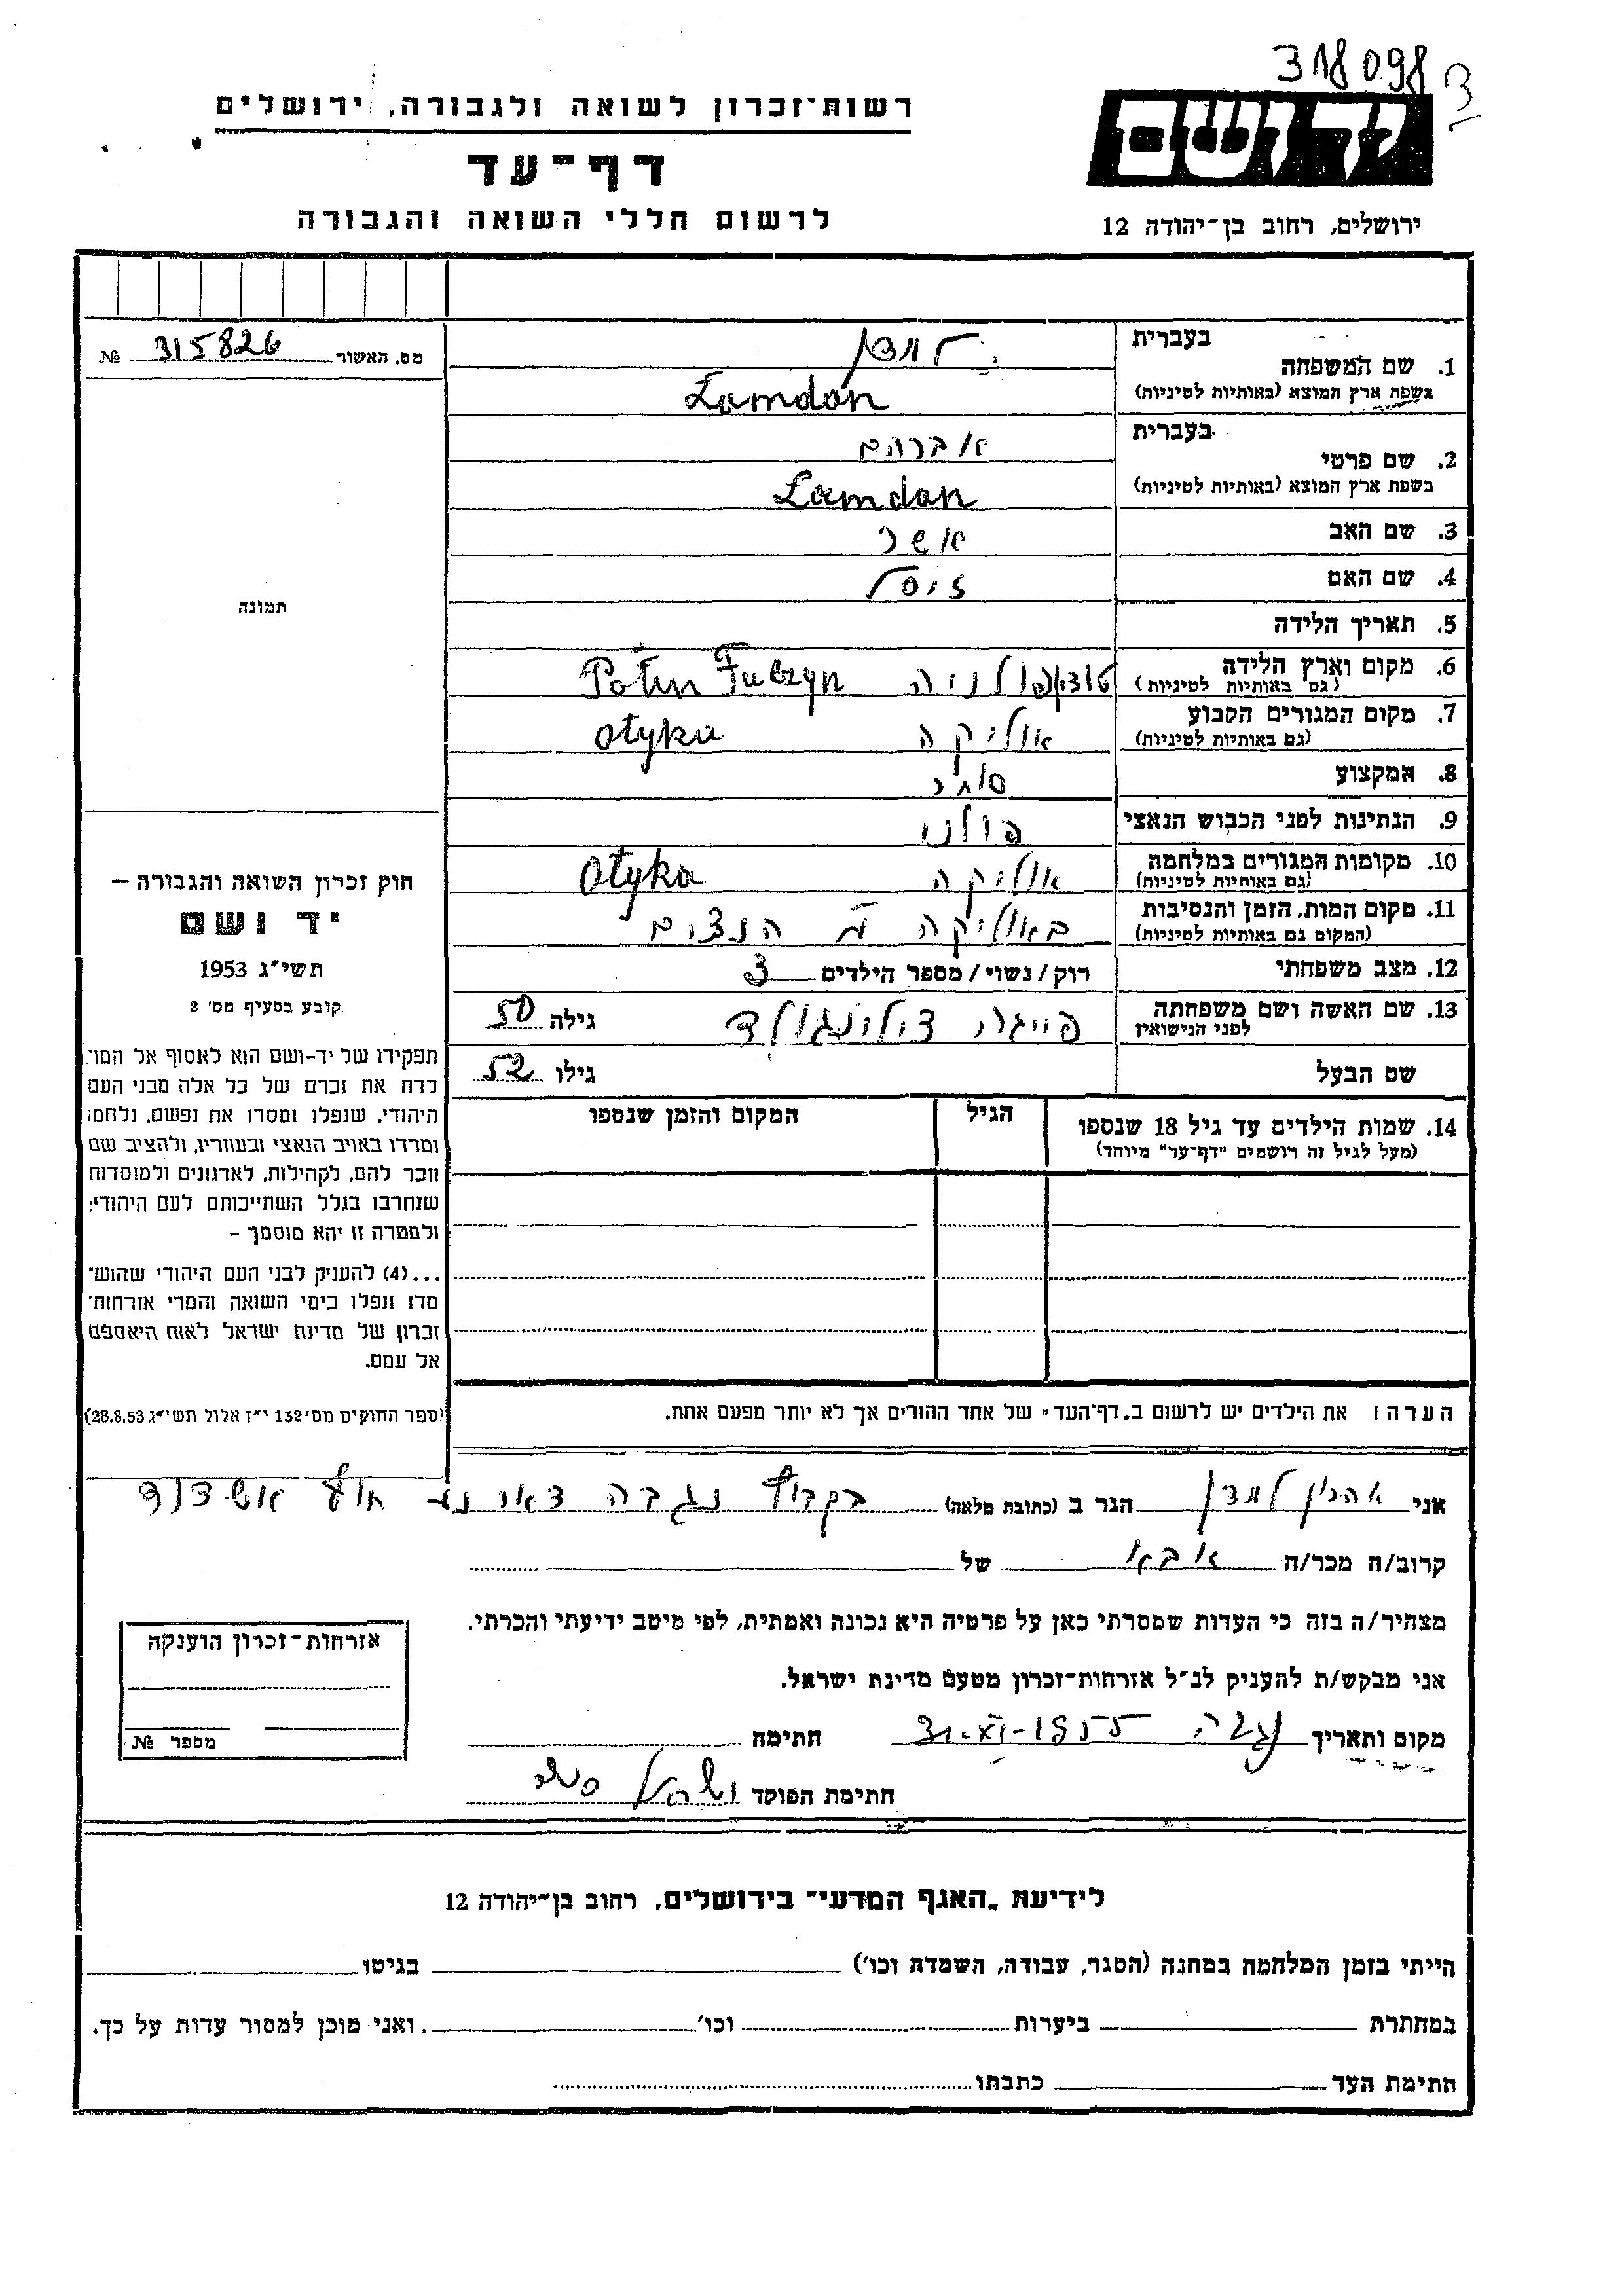 318098
3
יד ושם
ירושלים, רחוב בן־יהודה 12
רשות־זכרון לשואה ולגבורה, ירושלים
דף־עד
לרשום חללי השואה והגבורה
מס. האשור 315826 №
תמונה
חוק זכרון השואה והגבורה –
יד ושם
תשי״ג 1953
קובע בסעיף מס׳ 2
תפקידו של יד-ושם הוא לאסוף אל המו־
לדת את זכרם של כל אלה מבני העם
היהודי, שנפלו ומסרו את נפשם, נלחמו
ומרדו באויב הנאצי ובעוזריו, ולהציב שם
וזכר להם, לקהילות, לארגונים ולמוסדות
שנחרבו בגלל השתייכותם לעם היהודי;
ולמטרה זו יהא מוסמך –
...(4) להעניק לבני העם היהודי שהוש־
מדו ונפלו בימי השואה והמרי אזרחות־
זכרון של מדינת ישראל לאות היאספם
אל עמם.
(ספר החוקים מס׳ 132 י״ז אלול תשי״ג 28.8.53)
בעברית
1. שם המשפחה למדן
בשפת ארץ המוצא (באותיות לטיניות) Łamdan
בעברית
2. שם פרטי אברהם
בשפת ארץ המוצא (באותיות לטיניות) Łamdan
3. שם האב אשר
4. שם האם זיסל
5. תאריך הלידה
6. מקום וארץ הלידה פולניה
(גם באותיות לטיניות)
7. מקום המגורים הקבוע אוליקה Ołyka
(גם באותיות לטיניות)
8. המקצוע סוחר
9. הנתינות לפני הכבוש הנאצי פולני
10. מקומות המגורים במלחמה אוליקה Ołyka
(גם באותיות לטיניות)
11. מקום המות, הזמן והנסיבות באוליקה הנצים
(המקום גם באותיות לטיניות)
12. מצב משפחתי רוק/נשוי/מספר הילדים 3
13. שם האשה ושם משפחתה פייגה גילה 50
לפני הנישואין
שם הבעל גילו 52
14. שמות הילדים עד גיל 18 שנספו הגיל המקום והזמן שנספו
(מעל לגיל זה רושמים "דף־עד" מיוחד)
הערה: את הילדים יש לרשום ב„דף־העד" של אחד ההורים אך לא יותר מפעם אחת.
אני אהרון למדן הגר ב (כתובת מלאה) בקבוץ נגבה דאר נע חוף אשדוד
קרוב/ה מכר/ה אבא של
מצהיר/ה בזה כי העדות שמסרתי כאן על פרטיה היא נכונה ואמתית, לפי מיטב ידיעתי והכרתי.
אני מבקש/ת להעניק לנ״ל אזרחות-זכרון מטעם מדינת ישראל.
מקום ותאריך נגבה 1955 חתימה
חתימת הפוקד
אזרחות-זכרון הוענקה
מספר №
לידיעת „האגף המדעי" בירושלים, רחוב בן־יהודה 12
הייתי בזמן המלחמה במחנה (הסגר, עבודה, השמדה וכו׳) בגיטו
במחתרת ביערות וכו׳ . ואני מוכן למסור עדות על כך.
חתימת העד כתבתו